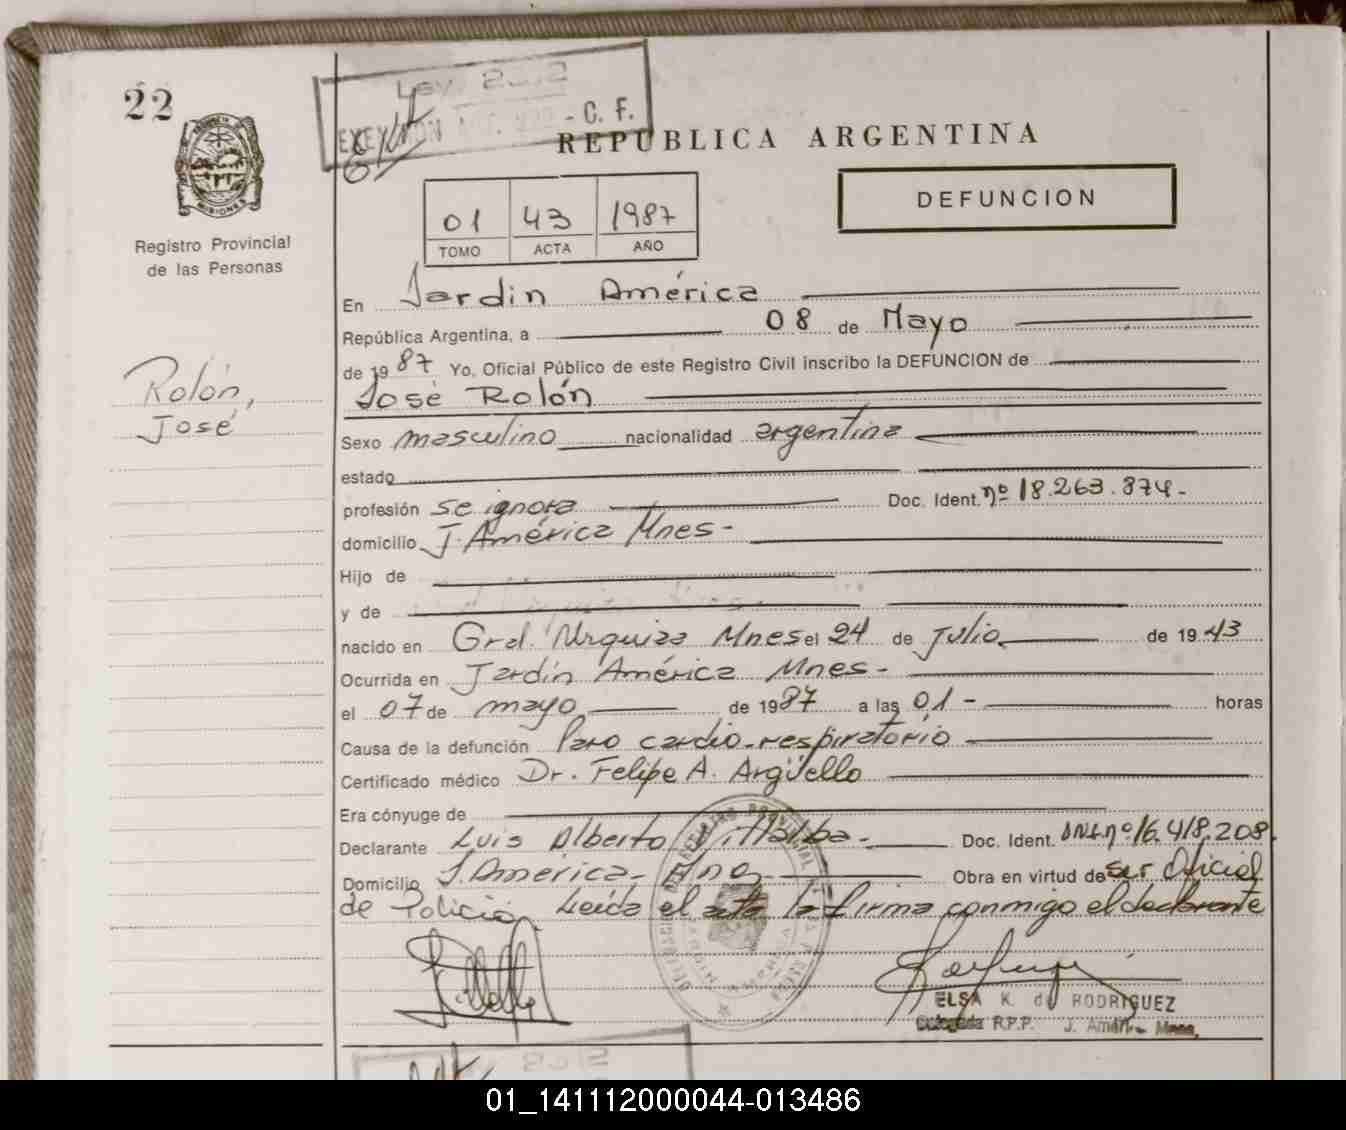 22
Ley 2
EXENCION - C. F.
REPUBLICA ARGENTINA
DEFUNCION
01 43 1987
TOMO ACTA AÑO
MISIONES
Registro Provincial
de las Personas
En Jardin América
República Argentina, a 08 de Mayo
de 1987 Yo, Oficial Público de este Registro Civil inscribo la DEFUNCION de
Rolón,
José
José Rolón
Sexo masculino nacionalidad argentina
estado
profesión se ignora Doc. Ident. nº 18.263.374-
domicilio J. América Mnes-
Hijo de
y de
nacido en Gral. Urquiza Mnes el 24 de Julio de 1943
Ocurrida en Jardín América Mnes-
el 07 de mayo de 1987 a las 01- horas
Causa de la defunción Paro cardio-respiratorio
Certificado médico Dr. Felipe A. Argüello
Era cónyuge de
Declarante Luis Alberto Villalba- Doc. Ident. DNI. nº 16.418.208
Domicilio J. América- Mnes Obra en virtud de ser Oficial
de Policía Leída el acta la firma conmigo el declarante
ELSA K. de RODRIGUEZ
Delegada R.P.P. J. Améri- Mnes.
01_141112000044-013486